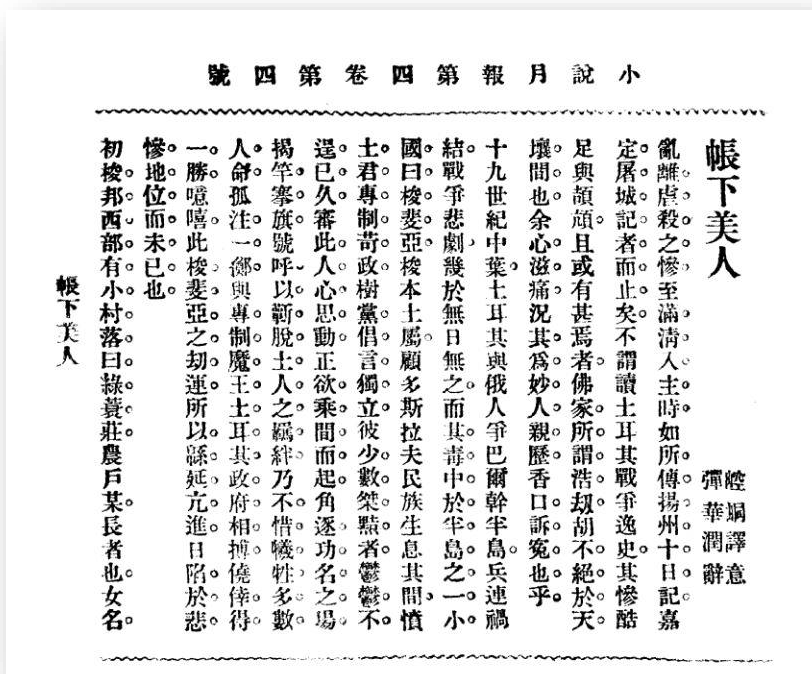 小說月報第四卷第四號
帳下美人
譯意
彈華潤辭
亂離虐殺之慘至滿清入主時如所傳揚州十日記嘉
定屠城記者而止矣不謂讀土耳其戰爭逸史其慘酷
足與頡頏且或有甚焉者佛家所謂浩劫胡不絕於天
壤間也余心滋痛況其爲妙人親歷香口訴冤也乎
十九世紀中葉土耳其與俄人爭巴爾幹半島兵連禍
結戰爭悲劇幾於無日無之而其毒中於半島之一小
國曰梭斐亞梭本土屬顧多斯拉夫民族生息其間憤
土君專制苛政樹黨倡言獨立彼少數桀黠者鬱鬱不
逞已久審此人心思動正欲乘間而起角逐功名之場
揭竿搴旗號呼以蘄脫土人之羈絆乃不惜犧牲多數
人命孤注一擲與專制魔王土耳其政府相搏僥倖得
一勝噫嘻此梭斐亞之劫運所以緜延亢進日陷於悲
慘地位而未已也
初梭邦西部有小村落曰綠蓑莊農戶某長者也女名
帳下美人